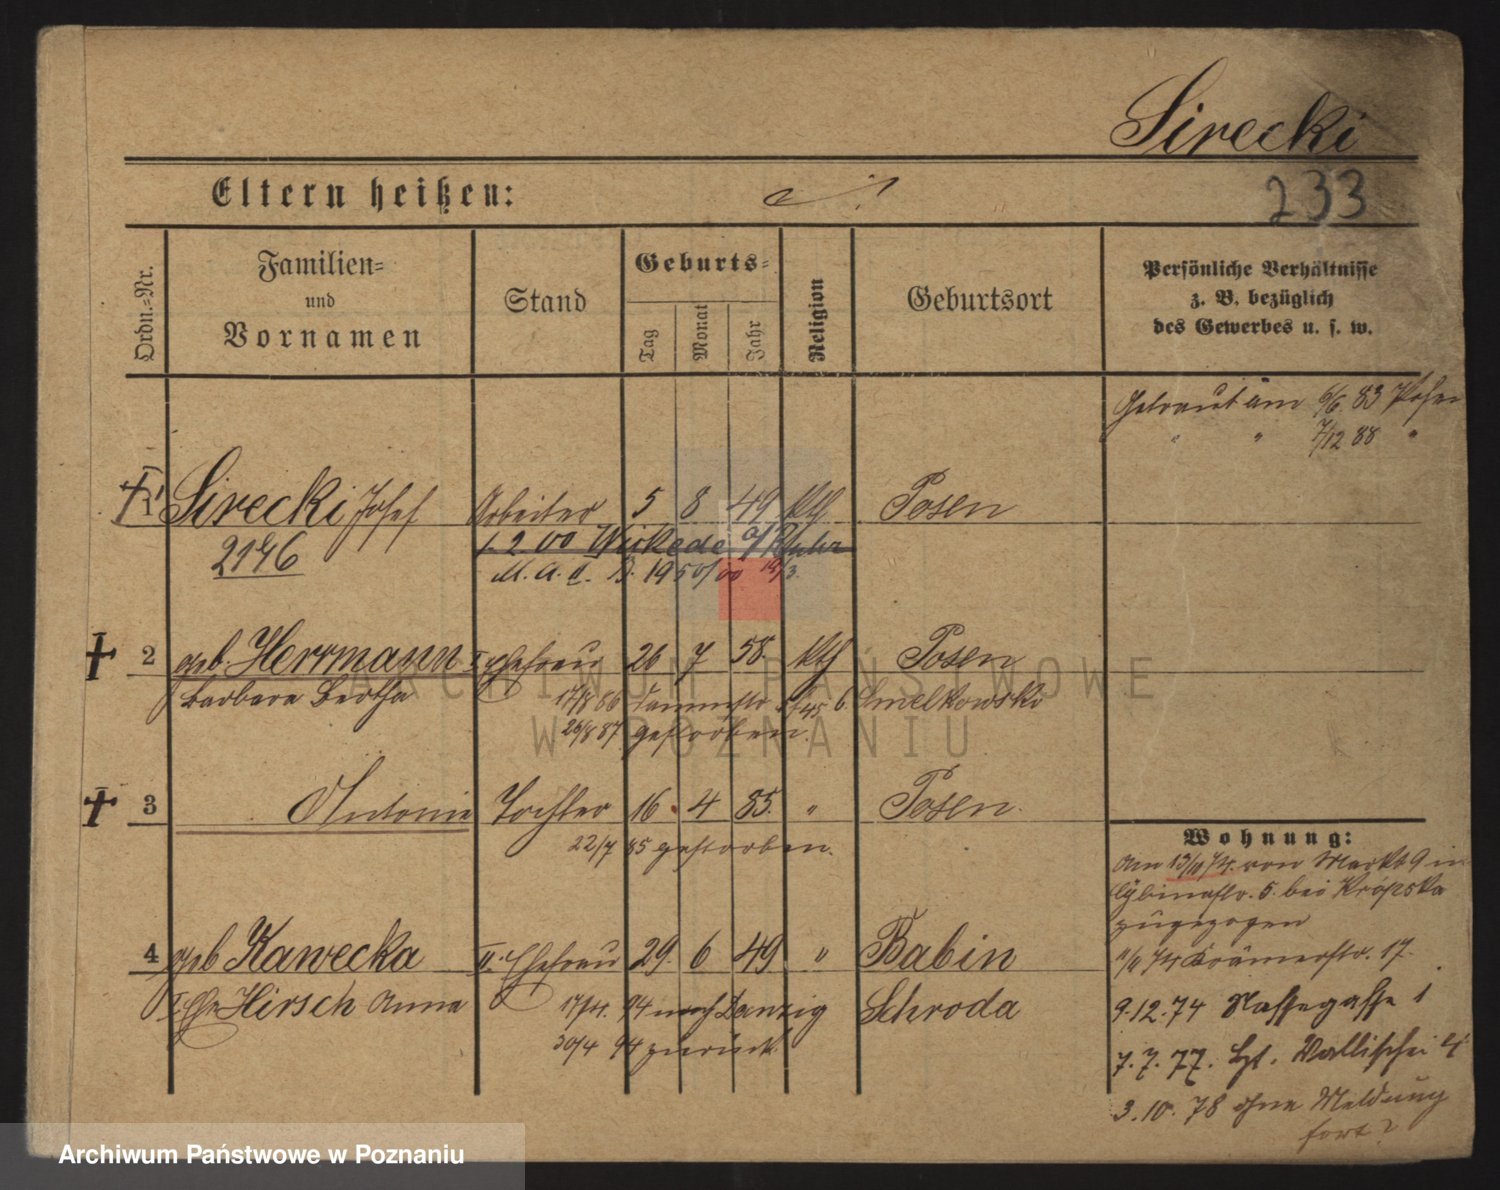 Sirecki
Eltern heißen:
233
Ordn.=Nr.
Familien=
und
Vornamen
Stand
Geburts=
Tag
Monat
Jahr
Religion
Geburtsort
Persönliche Verhältnisse
z. B. bezüglich
des Gewerbes u. s. w.
Getraut am 6/6. 83 Posen
" " 7/12 88 "
1 Sirecki Josef Arbeiter 5 8 49 kth Posen
2196 1. 2. 00 Wickede a/Ruhr
M. A. II. B. 1950/00 19/3.
2 geb. Herrmann I Ehefrau 26 7 58. kth Posen
Barbara Bertha 17/8 86 45 b. Smelkowski
26/8 87 gestorben.
3 Antonie Tochter 16. 4 85. " Posen.
22/7 85 gestorben.
Wohnung:
Am 13/11 74. von Markt 9 in
Cybinastr. 5. bei Kropska
zugezogen
4 geb Kawecka II. Ehefrau 29. 6 49 " Babin
11/11 74 Krämerstr. 17.
I. Ehe Hirsch Anna 17/4. 94 nach Danzig Schroda
9.12.74 Nassegasse 1
30/4 94 zurück.
7.7.77. Wallischei
3.10.78 ohne Meldung
fort?
ARCHIWUM PAŃSTWOWE
W POZNANIU
Archiwum Państwowe w Poznaniu